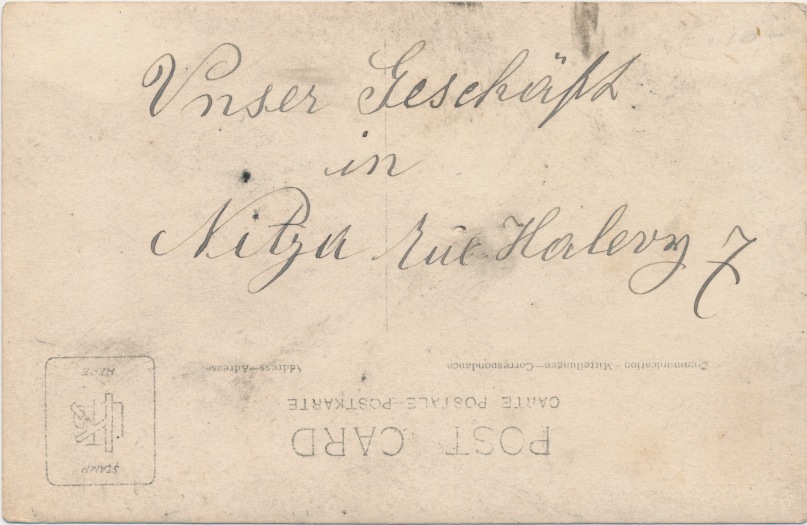 Unser Geschäft
in
Nitza rue Halevy 7
Communication—Mitteilungen—Correspondance
Address—Adresse
CARTE POSTALE—POSTKARTE
POST CARD
STAMP
HERE